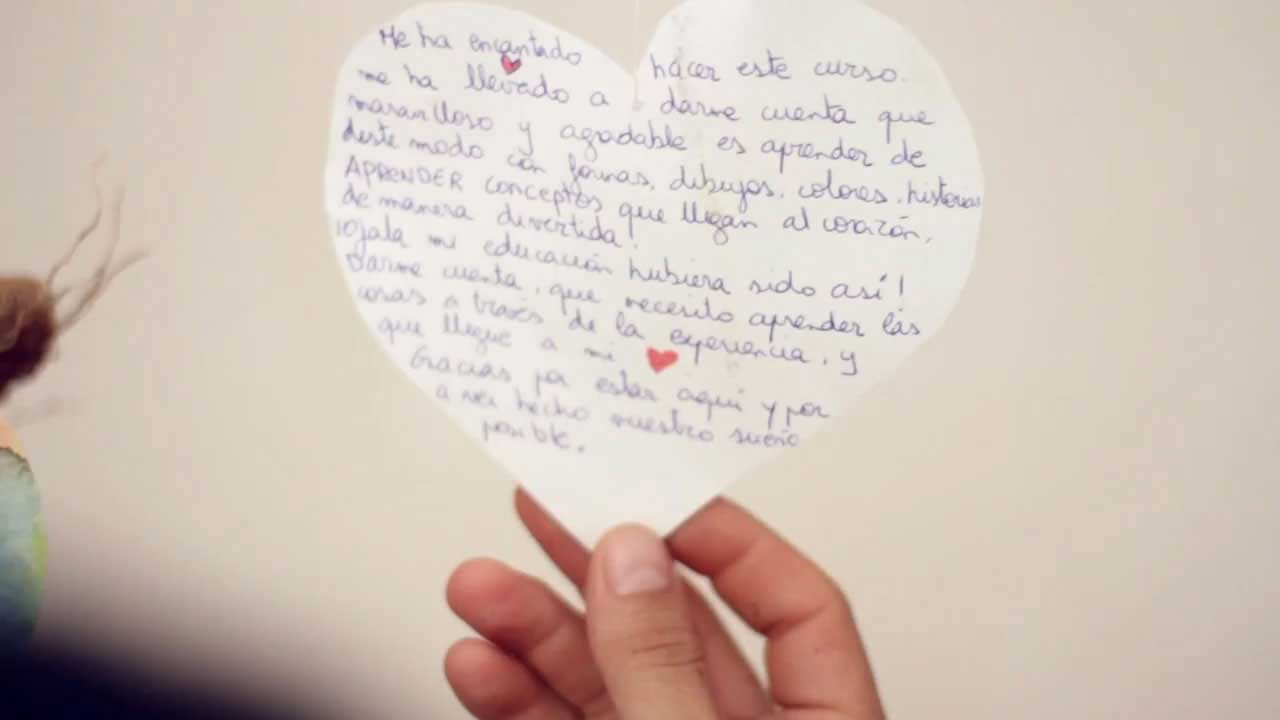 Me ha encantado hacer este curso.
me ha llevado a darme cuenta que
maravilloso y agradable es aprender de
deste modo con formas, dibujos, colores, historias
APRENDER conceptos que llegan al corazón,
de manera divertida.
¡ojala mi educación hubiera sido así!
Darme cuenta, que necesito aprender las
cosas a través de la experiencia, y
que llegue a mi ❤
Gracias por estar aqui y por
a ver hecho nuestro sueño
posible.